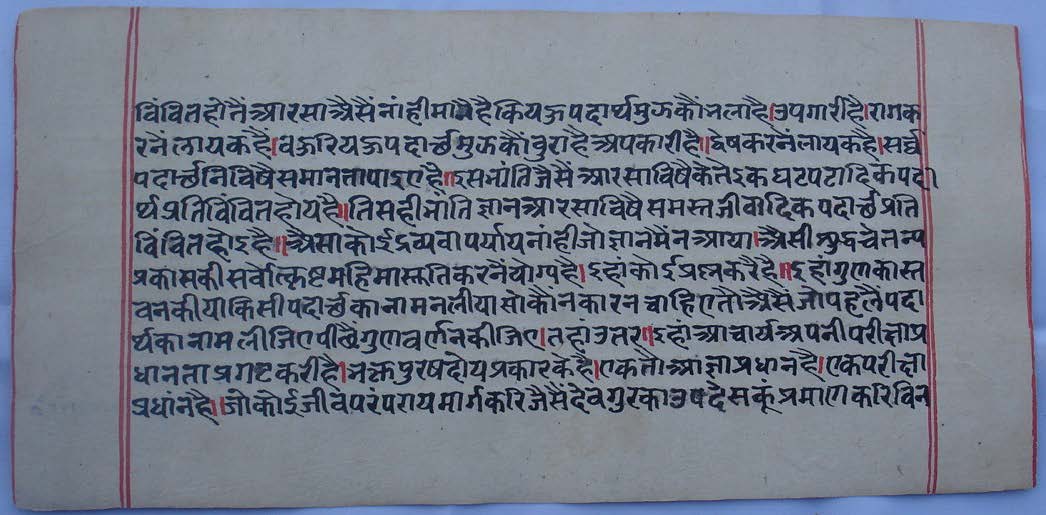 विंवितहोतैं आरसा अैसैं नांही मानैहै कि यऊ पदार्थ मुऊकौं भलाहै। उपगारीहै। रागक
रनैं लायकहैं। वऊरि यऊ पदार्छ मुऊकौं वुराहै अपकारीहै। द्वेषकरनैं लायकहै। सर्व्व
पदार्छनिविषै समानता पाइएहै। इस भांति जैसैं आरसाविषै केतेइक घटपटादिक पदा
र्थ प्रतिविंवितहोयहै। तिसही भांति ज्ञान आरसाविषै समस्त जीवादिक पदार्छ प्रति
विंवितहोइहै। अैसा कोई द्रव्य वा पर्याय नांही जो ज्ञानमैं न आया। अैसी शुद्ध चेतन्य
प्रकासकी सर्वोत्क्रिष्ट महिमा स्तुति करनैं योग्यहै। इहां कोई प्रश्न करैहै। इहां गुणका स्त
वन कीया किसी पदार्छका नाम न लीया सो कौन कारन चाहिए तौ अैसैं जो पहलैं पदा
र्थका नाम लीजिए पीछैं गुण वर्णन कीजिए। तहां उतर। इहां आचार्य अपनी परीक्षा प्र
धानता प्रगट करीहै। भक्त पुरष दोय प्रकारकेहै। एक तो आज्ञा प्रधानहै। एक परीक्षा
प्रधांनहै। जो कोई जीव परंपराय मार्ग करि जैसैं देव गुरका उपदेसकूं प्रमाण करि विन